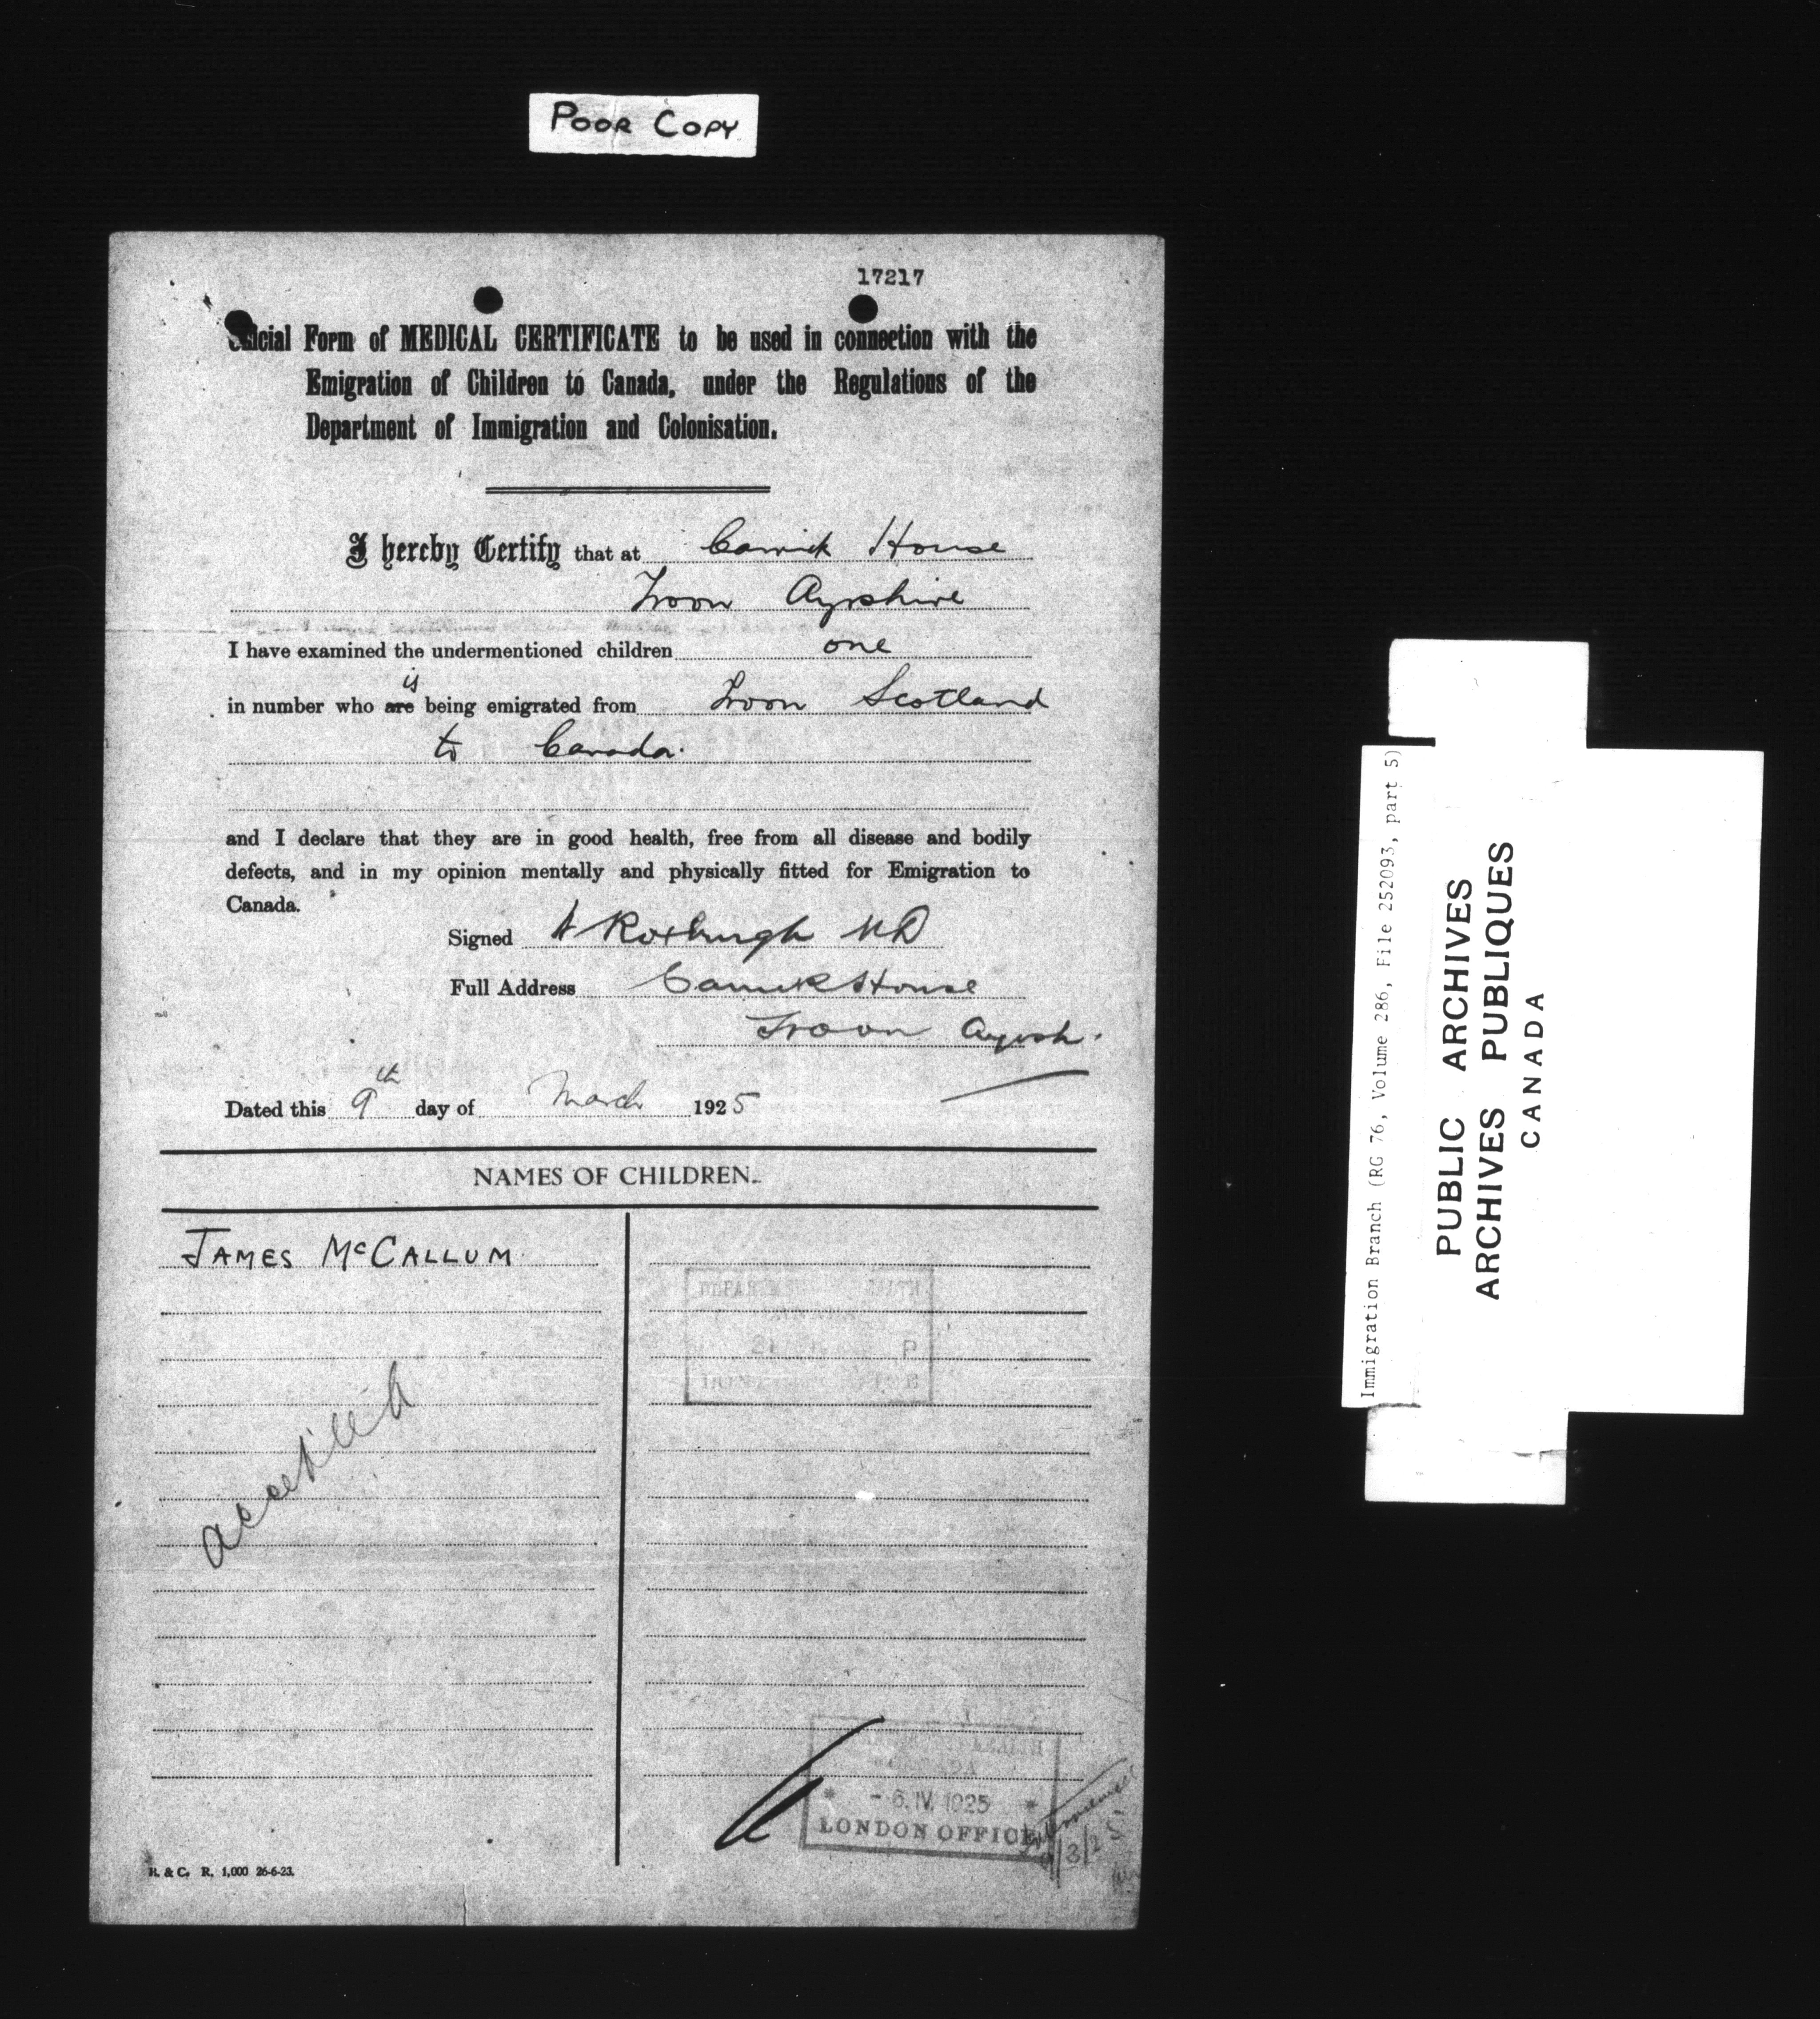 POOR COPY
17217
Official Form of MEDICAL CERTIFICATE to be used in connection with the
Emigration of Children to Canada, under the Regulations of the
Department of Immigration and Colonisation.
I hereby Certify that at Carrick House
Troon Ayrshire
I have examined the undermentioned children one
is
in number who are being emigrated from Troon Scotland
to Canada.
and I declare that they are in good health, free from all disease and bodily
defects, and in my opinion mentally and physically fitted for Emigration to
Canada.
Signed A Roxburgh MD
Full Address Carrick House
Troon Ayrsh.
Dated this 9th day of March 1925
NAMES OF CHILDREN.
JAMES McCALLUM
- 6. IV. 1925
LONDON OFFICE
/3/25
H. & C. R. 1,000 26-6-23.
Immigration Branch (RG 76, Volume 286, File 252093, part 5)
PUBLIC ARCHIVES
ARCHIVES PUBLIQUES
CANADA